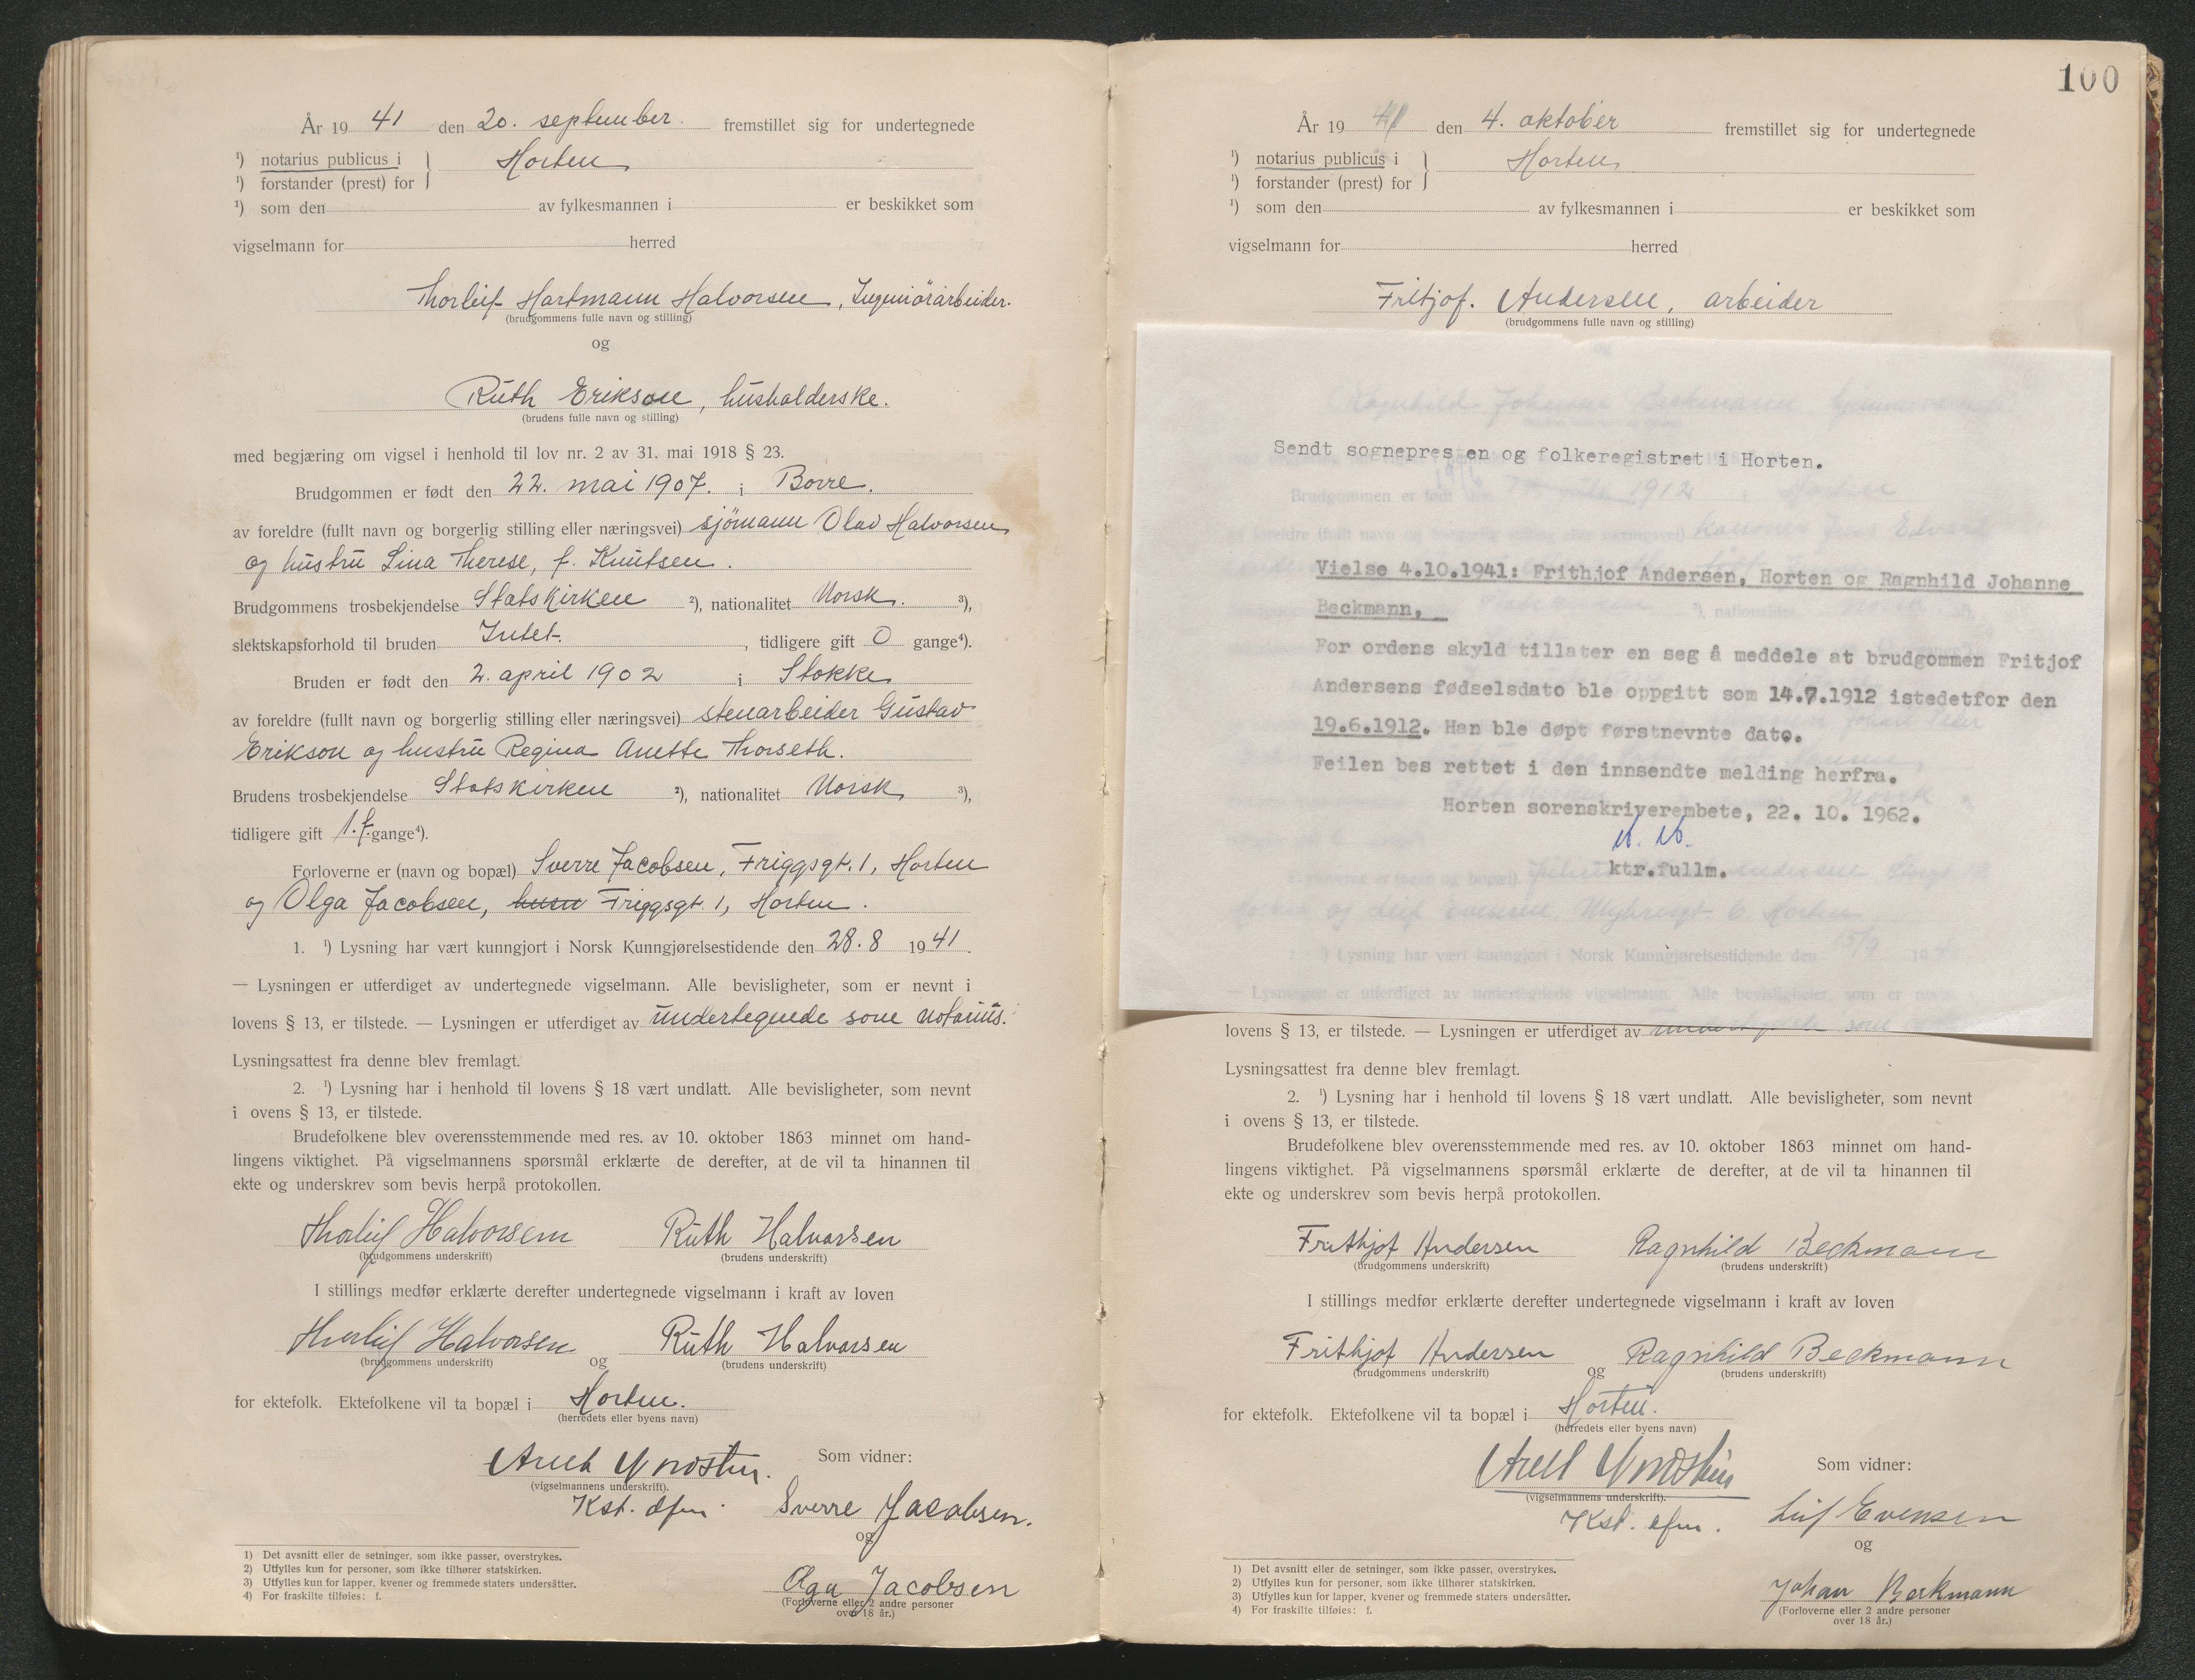 År 19 41 den 20. september. fremstillet sig for undertegnede
¹) notarius publicus i } Horten
¹) forstander (prest) for
¹) som den av fylkesmannen i er beskikket som
vigselmann for herred
Thorleif Hartmann Halvorsen, Ingeniörarbeider.
(brudgommens fulle navn og stilling)
og
Ruth Erikson, husholderske.
(brudens fulle navn og stilling)
med begjæring om vigsel i henhold til lov nr. 2 av 31. mai 1918 § 23.
Brudgommen er født den 22. mai 1907. i Borre.
av foreldre (fullt navn og borgerlig stilling eller næringsvei) sjömann Olav Halvorsen
og hustru Lina Therese, f. Knutsen.
Brudgommens trosbekjendelse Statskirken ²), nationalitet Norsk. ³),
slektskapsforhold til bruden Intet. , tidligere gift 0 gange⁴).
Bruden er født den 2. april 1902 i Stokke
av foreldre (fullt navn og borgerlig stilling eller næringsvei) stenarbeider Gustav
Erikson og hustru Regina Anette Thorseth.
Brudens trosbekjendelse Statskirken ²), nationalitet Norsk ³),
tidligere gift 1.f. gange⁴).
Forloverne er (navn og bopæl) Sverre Jacobsen, Friggsgt. 1, Horten
og Olga Jacobsen, Friggsgt. 1, Horten.
1. ¹) Lysning har vært kunngjort i Norsk Kunngjørelsestidende den 28.8 19 41.
— Lysningen er utferdiget av undertegnede vigselmann. Alle bevisligheter, som er nevnt i
lovens § 13, er tilstede. — Lysningen er utferdiget av undertegnede som notarius.
Lysningsattest fra denne blev fremlagt.
2. ¹) Lysning har i henhold til lovens § 18 vært undlatt. Alle bevisligheter, som nevnt
i ovens § 13, er tilstede.
Brudefolkene blev overensstemmende med res. av 10. oktober 1863 minnet om hand-
lingens viktighet. På vigselmannens spørsmål erklærte de derefter, at de vil ta hinannen til
ekte og underskrev som bevis herpå protokollen.
Thorleif Halvorsen Ruth Halvorsen
(brudgommens underskrift) (brudens underskrift)
I stillings medfør erklærte derefter undertegnede vigselmann i kraft av loven
Thorleif Halvorsen og Ruth Halvorsen
(brudgommens underskrift) (brudens underskrift)
for ektefolk. Ektefolkene vil ta bopæl i Horten.
(herredets eller byens navn)
Som vidner:
(vigselmannens underskrift).
Kst. dfm. Sverre Jacobsen.
og
Olga Jacobsen
(Forloverne eller 2 andre personer
over 18 år.)
1) Det avsnitt eller de setninger, som ikke passer, overstrykes.
2) Utfylles kun for personer, som ikke tilhører statskirken.
3) Utfylles kun for lapper, kvener og fremmede staters undersåtter.
4) For fraskilte tilføies: f.
100
År 19 41 den 4. oktober fremstillet sig for undertegnede
¹) notarius publicus i } Horten
¹) forstander (prest) for
¹) som den av fylkesmannen i er beskikket som
vigselmann for herred
Fritjof. Andersen, arbeider
(brudgommens fulle navn og stilling)
Sendt sognepres en og folkeregistret i Horten.
Vielse 4.10.1941: Frithjof Andersen, Horten og Ragnhild Johanne
Beckmann,
For ordens skyld tillater en seg å meddele at brudgommen Fritjof
Andersens fødselsdato ble oppgitt som 14.7.1912 istedetfor den
19.6.1912. Han ble døpt førstnevnte dato.
Feilen bes rettet i den innsendte melding herfra.
Horten sorenskriverembete, 22. 10. 1962.
ktr.fullm.
lovens § 13, er tilstede. — Lysningen er utferdiget av undertegnede som
Lysningsattest fra denne blev fremlagt.
2. ¹) Lysning har i henhold til lovens § 18 vært undlatt. Alle bevisligheter, som nevnt
i ovens § 13, er tilstede.
Brudefolkene blev overensstemmende med res. av 10. oktober 1863 minnet om hand-
lingens viktighet. På vigselmannens spørsmål erklærte de derefter, at de vil ta hinannen til
ekte og underskrev som bevis herpå protokollen.
Frithjof Andersen Ragnhild Beckmann
(brudgommens underskrift) (brudens underskrift)
I stillings medfør erklærte derefter undertegnede vigselmann i kraft av loven
Frithjof Andersen og Ragnhild Beckmann
(brudgommens underskrift) (brudens underskrift)
for ektefolk. Ektefolkene vil ta bopæl i Horten.
(herredets eller byens navn)
Som vidner:
(vigselmannens underskrift).
Kst. dfm. Leif Evensen
og
Johan Beckmann
(Forloverne eller 2 andre personer
over 18 år.)
1) Det avsnitt eller de setninger, som ikke passer, overstrykes.
2) Utfylles kun for personer, som ikke tilhører statskirken.
3) Utfylles kun for lapper, kvener og fremmede staters undersåtter.
4) For fraskilte tilføies: f.